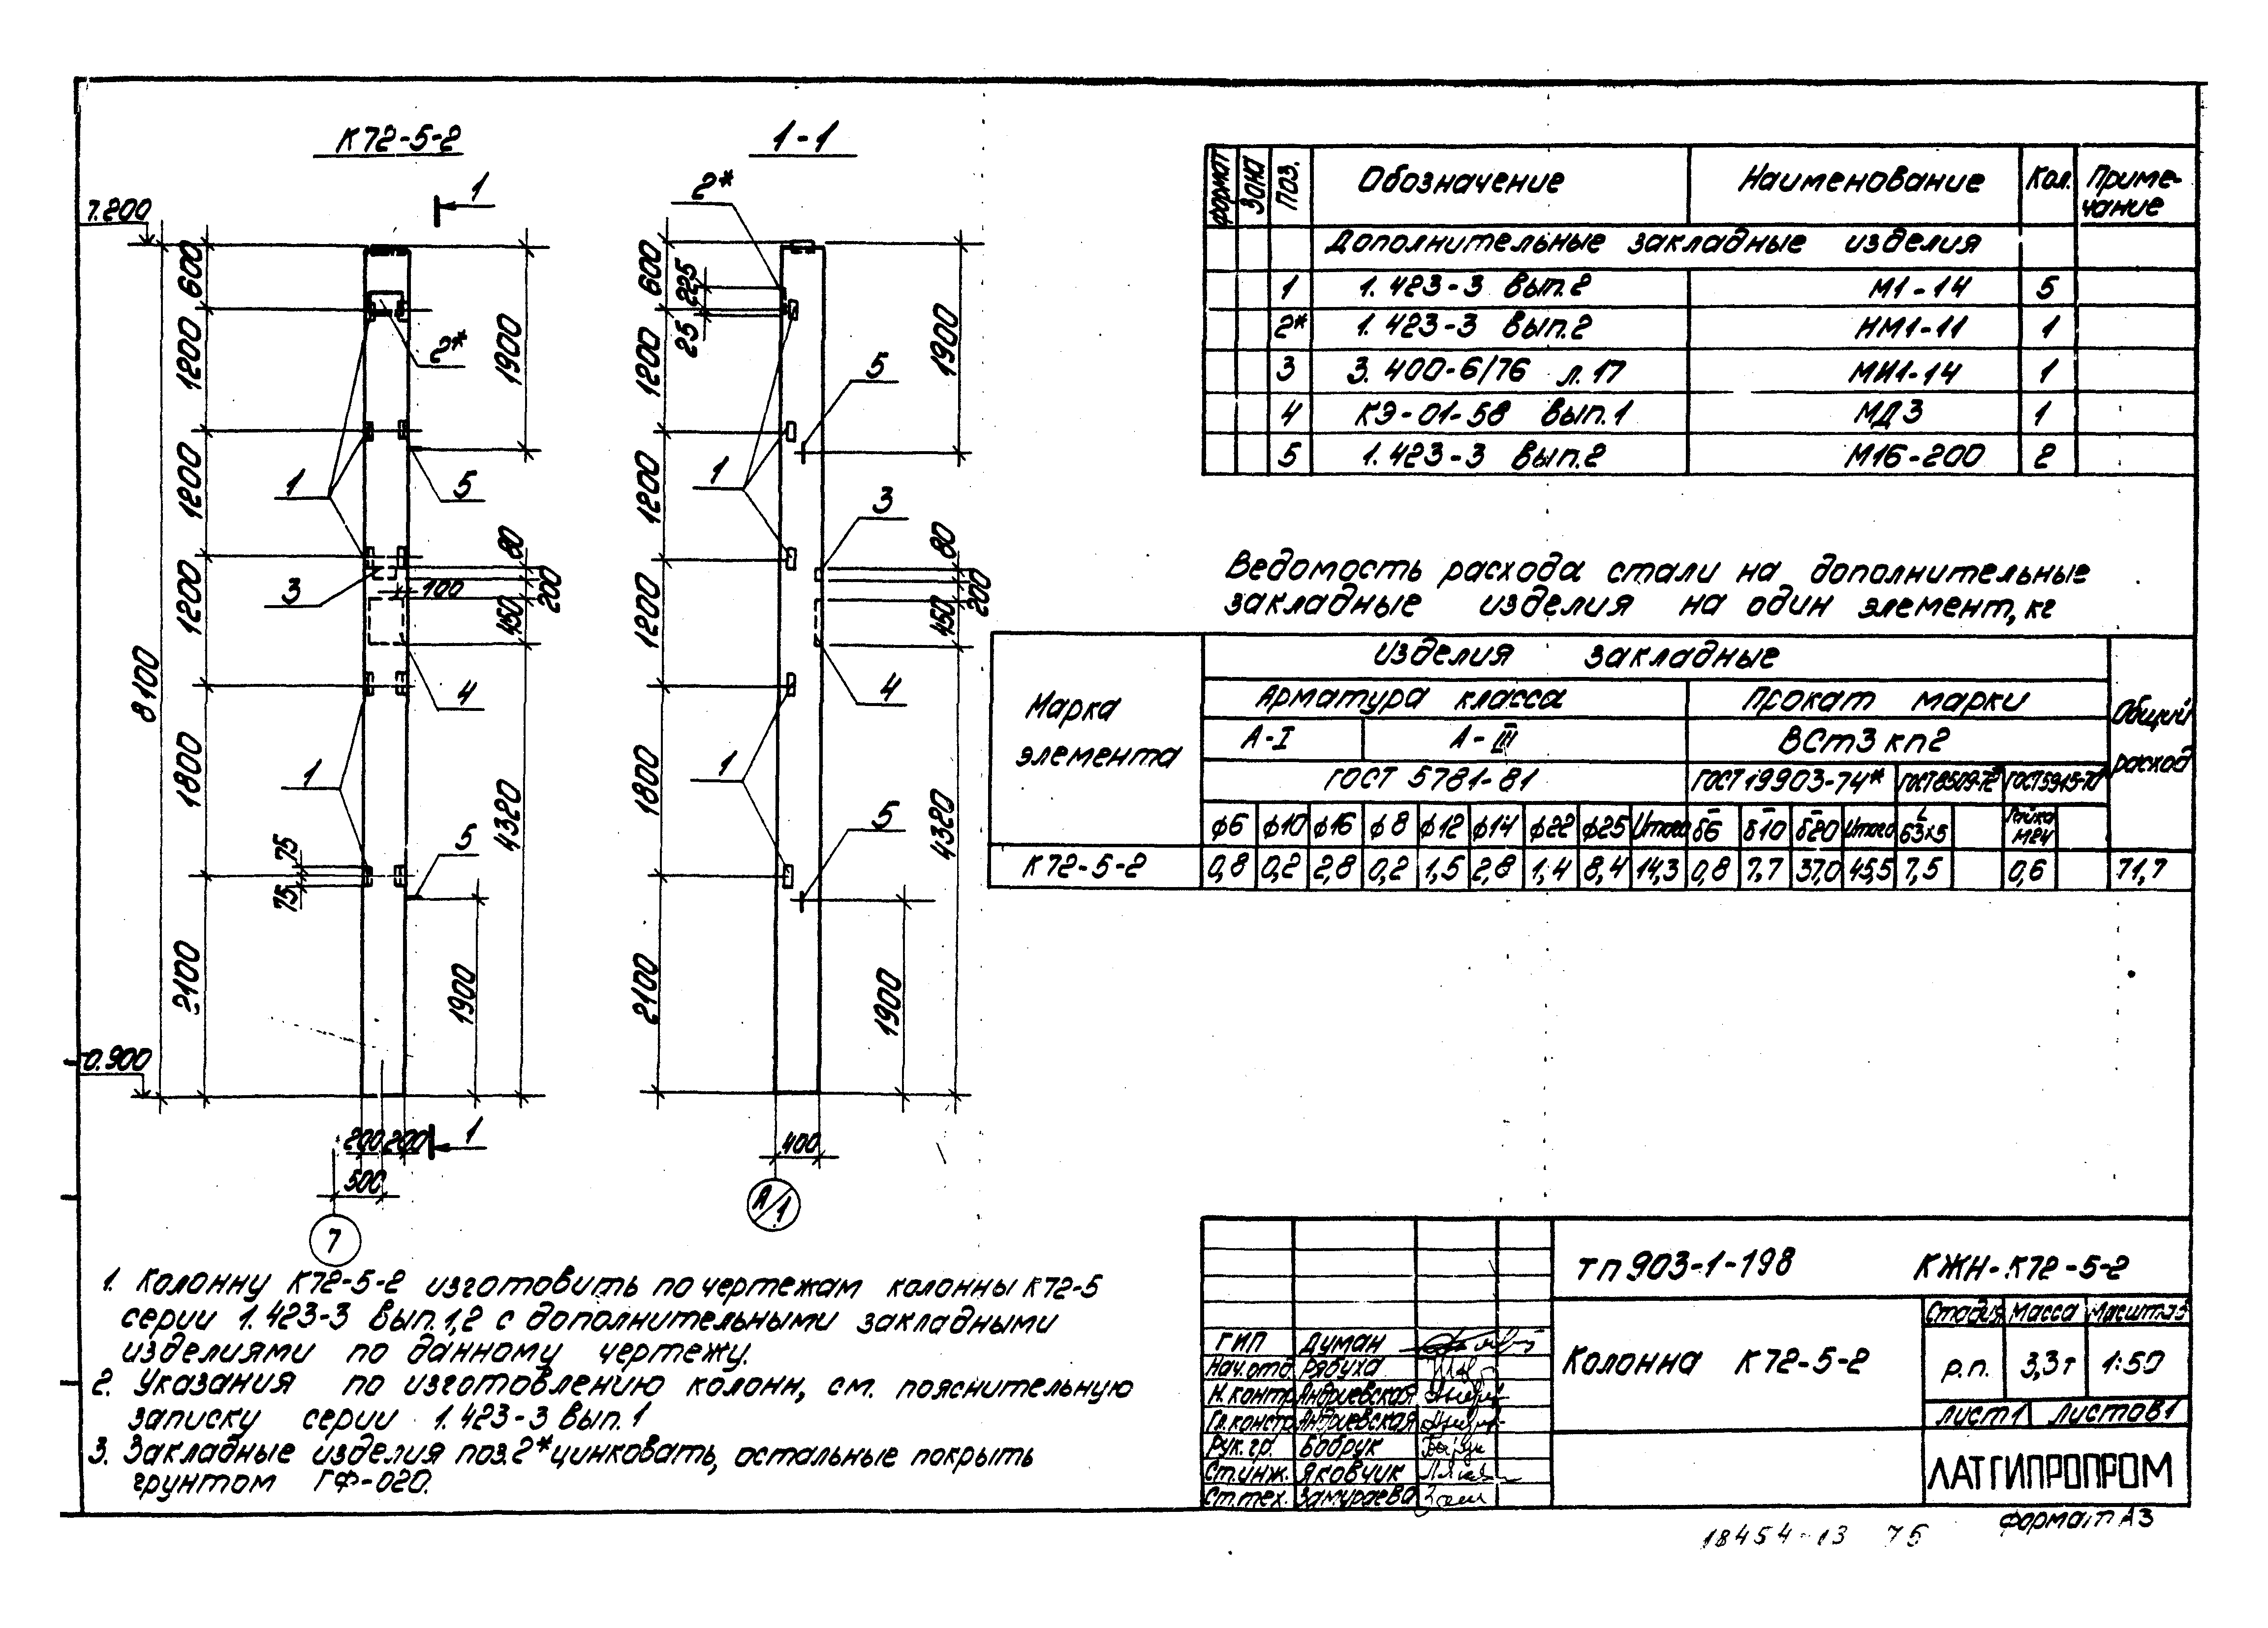 К72-5-2
1-1
1
7.200
2*
600
1200
1200
1200
1800
2100
8100
1900
2*
1
5
80
200
450
100
3
4
1
4320
5
75
75
1900
-0.900
200 200
1
500
7
600
225
25
1200
1200
1200
1800
2100
1900
5
1
3
80
200
450
4
1
4320
5
1900
400
А/1
формат Зона Поз. Обозначение Наименование Кол. Приме-
чание
Дополнительные закладные изделия
1 1.423-3 вып.2 М1-14 5
2* 1.423-3 вып.2 НМ1-11 1
3 3.400-6/76 л.17 МИ1-14 1
4 КЭ-01-58 вып.1 МД3 1
5 1.423-3 вып.2 М16-200 2
Ведомость расхода стали на дополнительные
закладные изделия на один элемент, кг
Марка
элемента
изделия закладные
Общий
расход
Арматура класса Прокат марки
А-I А-III ВСт3кп2
ГОСТ 5781-81 ГОСТ 19903-74* ГОСТ8509-72* ГОСТ5915-70*
ф6 ф10 ф16 ф8 ф12 ф14 ф22 ф25 Итого δ6 δ10 δ20 Итого L 63х5 Гайка М24
К72-5-2 0,8 0,2 2,8 0,2 1,5 2,8 1,4 8,4 14,3 0,8 7,7 37,0 45,5 7,5 0,6 71,7
1. Колонну К72-5-2 изготовить по чертежам колонны К72-5
серии 1.423-3 вып.1,2 с дополнительными закладными
изделиями по данному чертежу.
2. Указания по изготовлению колонн, см. пояснительную
записку серии 1.423-3 вып.1
3. Закладные изделия поз.2* цинковать, остальные покрыть
грунтом ГФ-020.
тп 903-1-198 КЖН-К72-5-2
Колонна К72-5-2
Стадия Масса Масштаб
р.п. 3,3т 1:50
лист 1 листов 1
ЛАТГИПРОПРОМ
ГИП Думан
Нач.отд. Рябуха
Н.контр. Андриевская
Гл.констр. Андриевская
Рук.гр. Бобрук
Ст.инж. Яковчик
Ст.тех. Замураева
формат А3
18454-13 75